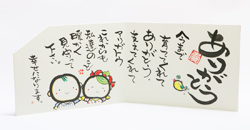 ありがとう
今まで
育ててくれて
ありがとう。
支えてくれて
アリガトウ
これからも
私達のこと
暖かく
見守って
下さい。
幸せになります。